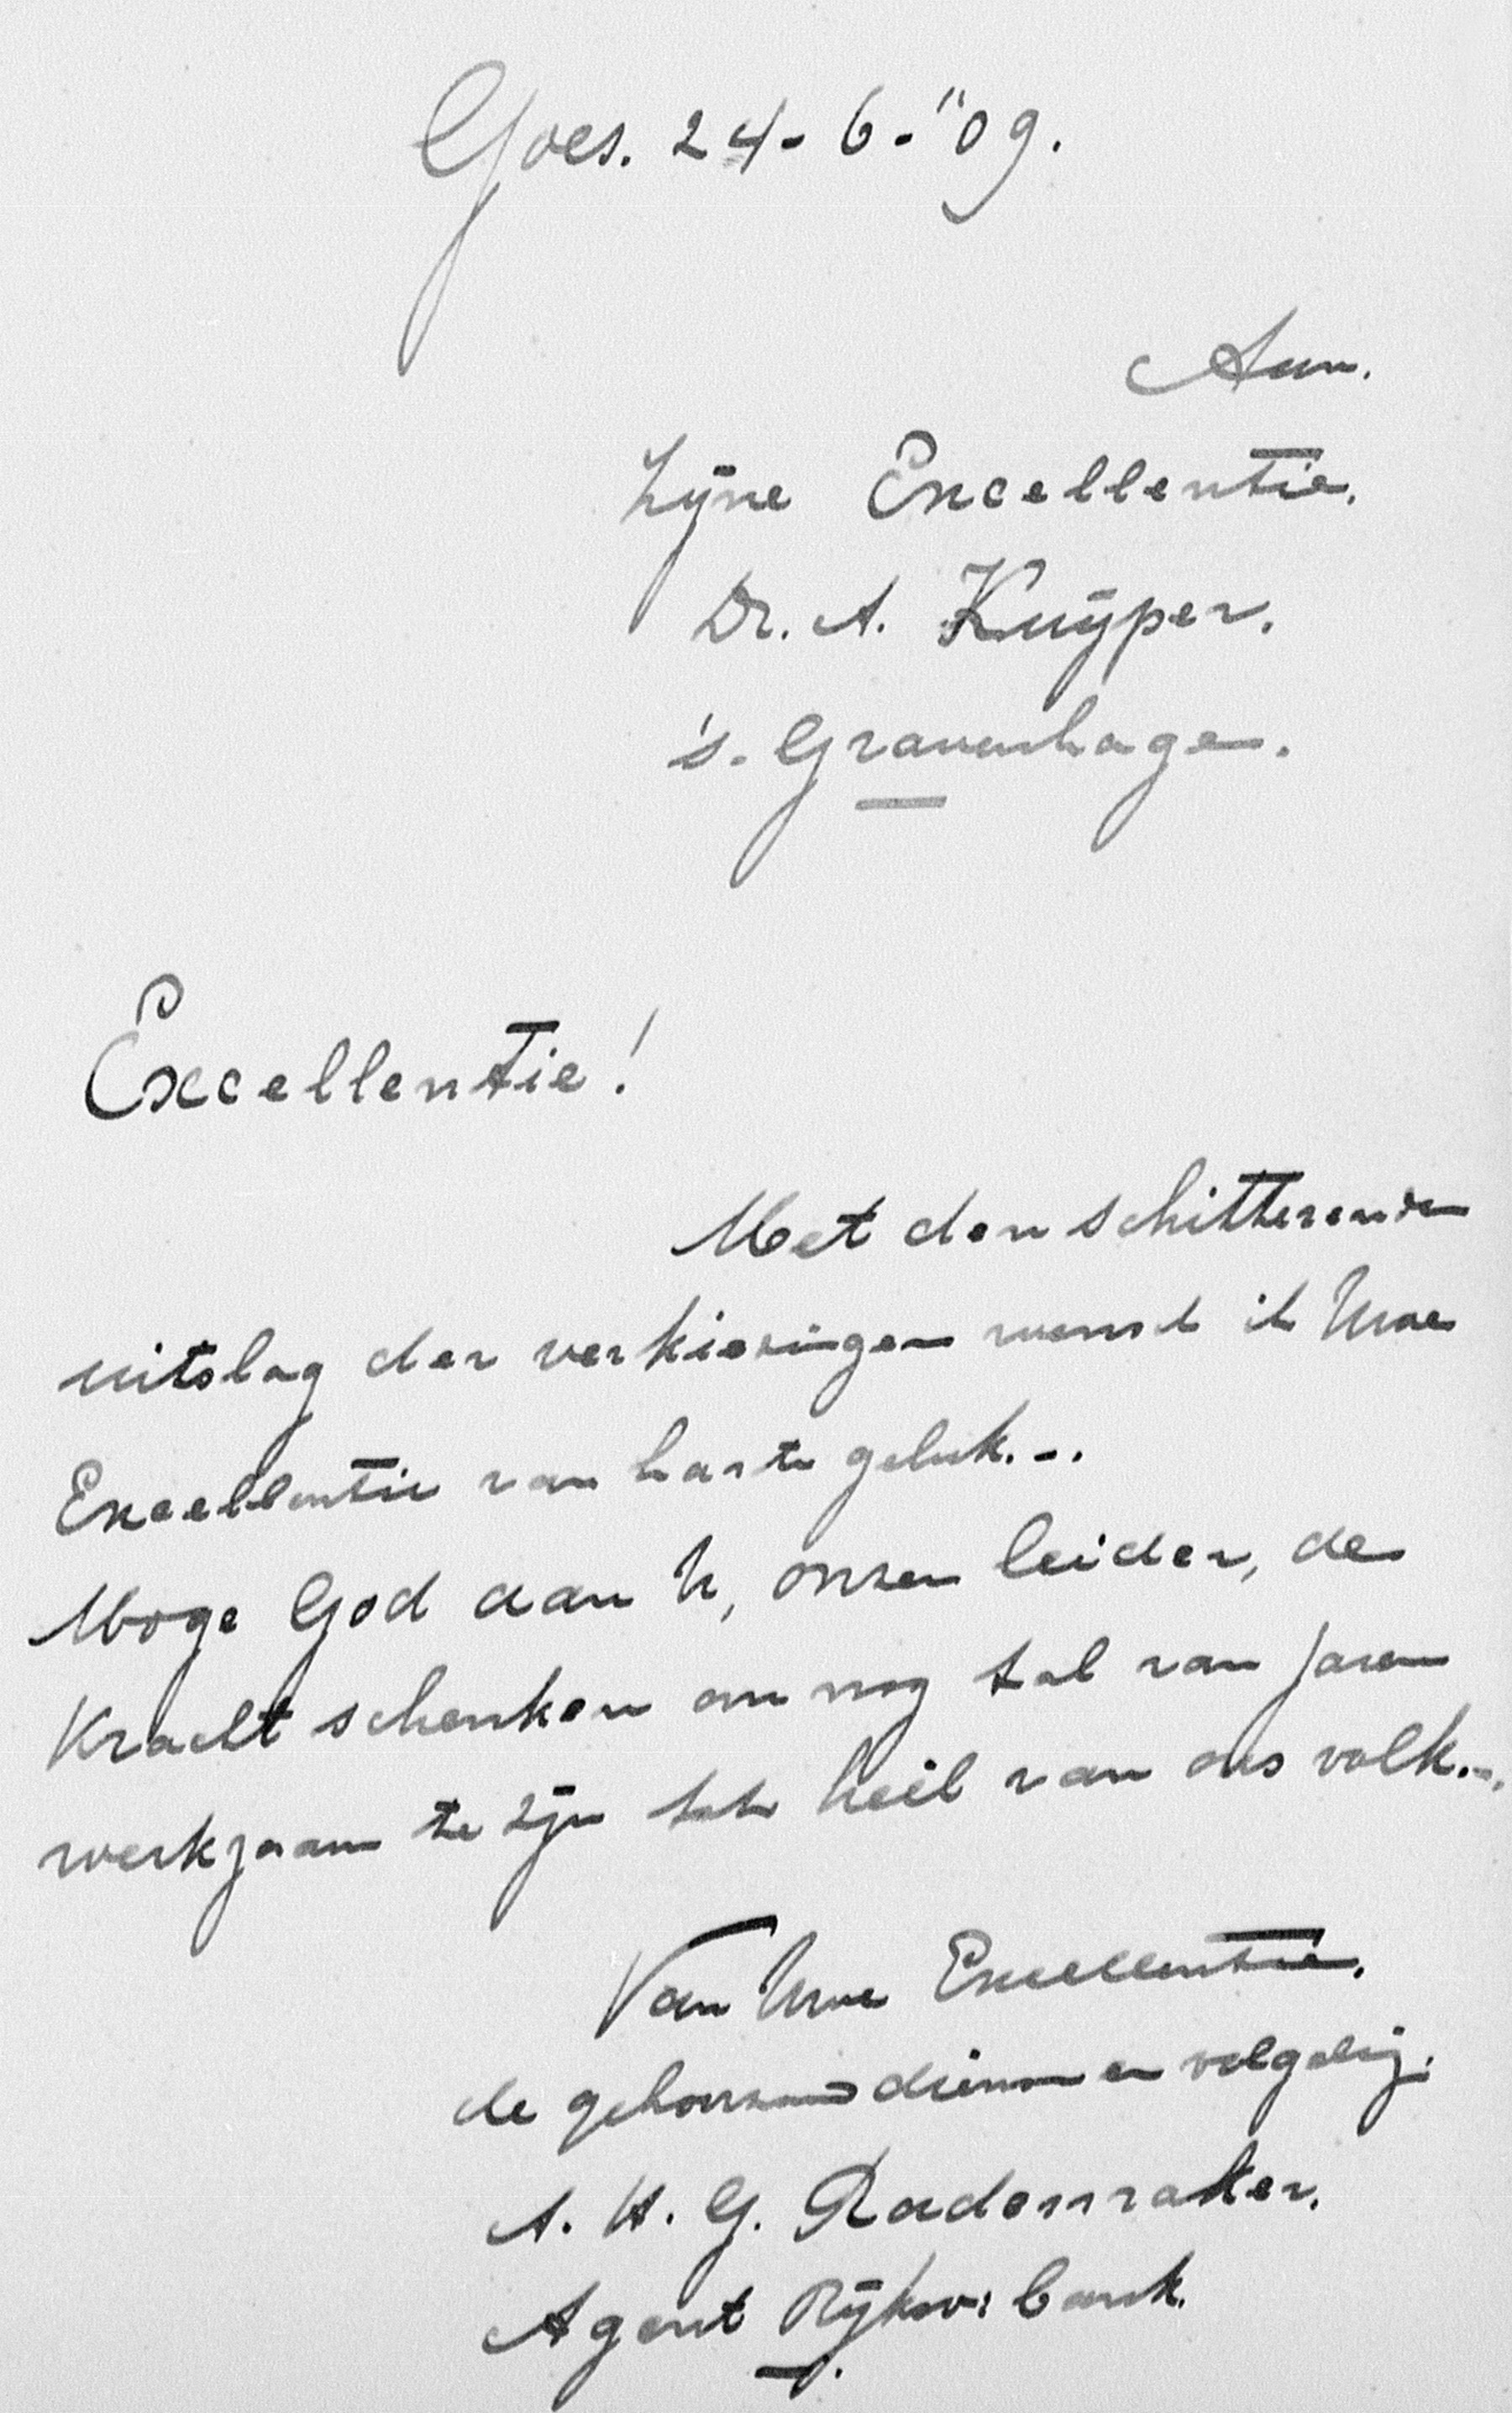 Goes. 24-6-"09.
Aan.
Zijne Excellentie.
Dr. A. Kuÿper.
's-Gravenhage.
Excellentie!
Met den schitterenden
uitslag der verkiezingen wensch ik Uwe
Excellentie van harte geluk.-.
Moge God aan U, onzen leider, de
Kracht schenken om nog tal van jaren
werkzaam te zijn tot heil van ons volk.-.
Van Uwe Excellentie.
de gehoorzame dienaar en volgeling.
A. H. G. Rademaker.
Agent Rijksv: bank.